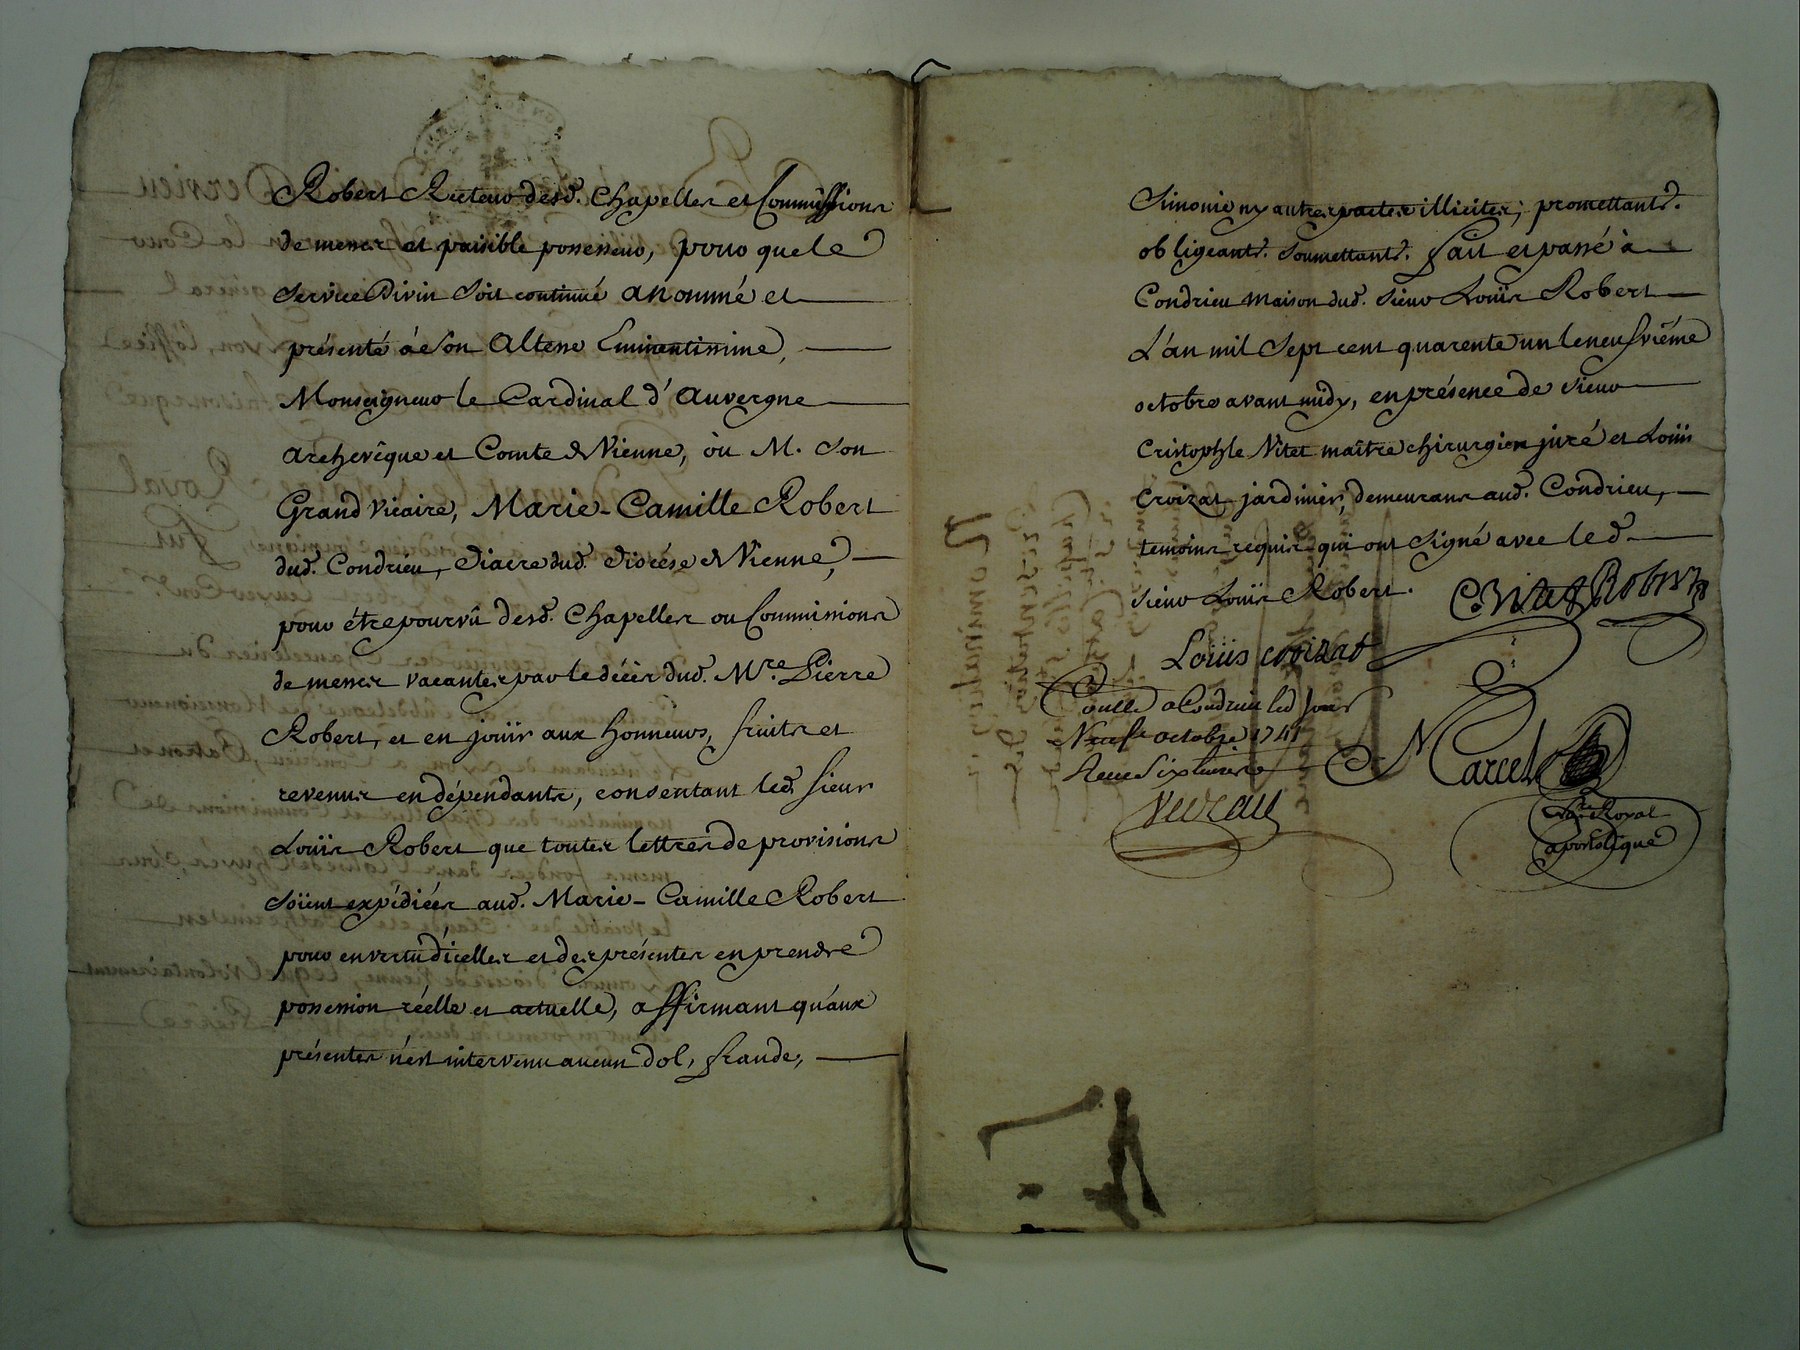 Robert Recteur desd. Chapelles et Commissions
de messes et paisible possesseur, pour que le
Service Divin soit continué a nommé et
présenté à Son Altesse Eminentissime,
Monseigneur le Cardinal d'Auvergne
archevêque et Comte de Vienne, ou M. son
Grand Vicaire, Marie-Camille Robert
dud. Condrieu, Diacre dud. Diocèse de Vienne,
pour être pourvû desd. Chapelles ou Commissions
de messes vacantes par le décès dud. Mre. Pierre
Robert, et en jouir aux honneurs, fruits et
revenus en dépendants, consentant led. sieur
Louis Robert que toutes lettres de provisions
soient expédiées aud. Marie-Camille Robert
pour en vertu d'icelles et des présentes en prendre
possession réelle et actuelle, affirmant qu'aux
présentes n'est intervenu aucun dol, fraude,
Simonie ny autres pactes illicites; promettants.
obligeants. soumettants. fait et passé à
Condrieu maison dud. sieur Louis Robert
L'an mil sept cent quarente un le neufvième
octobre avant midy, en présence de sieur
Cristophle Vitet maître chirurgien juré et Louis
Croizat jardinier, demeurans aud. Condrieu,
temoins requis qui ont signé avec led.
sieur Louis Robert. C. Vitet Robert
Louis croizat
Conllé a Condrieu led jour
Neufe octobre 1741
Marcel
Nore Royal
apostolique